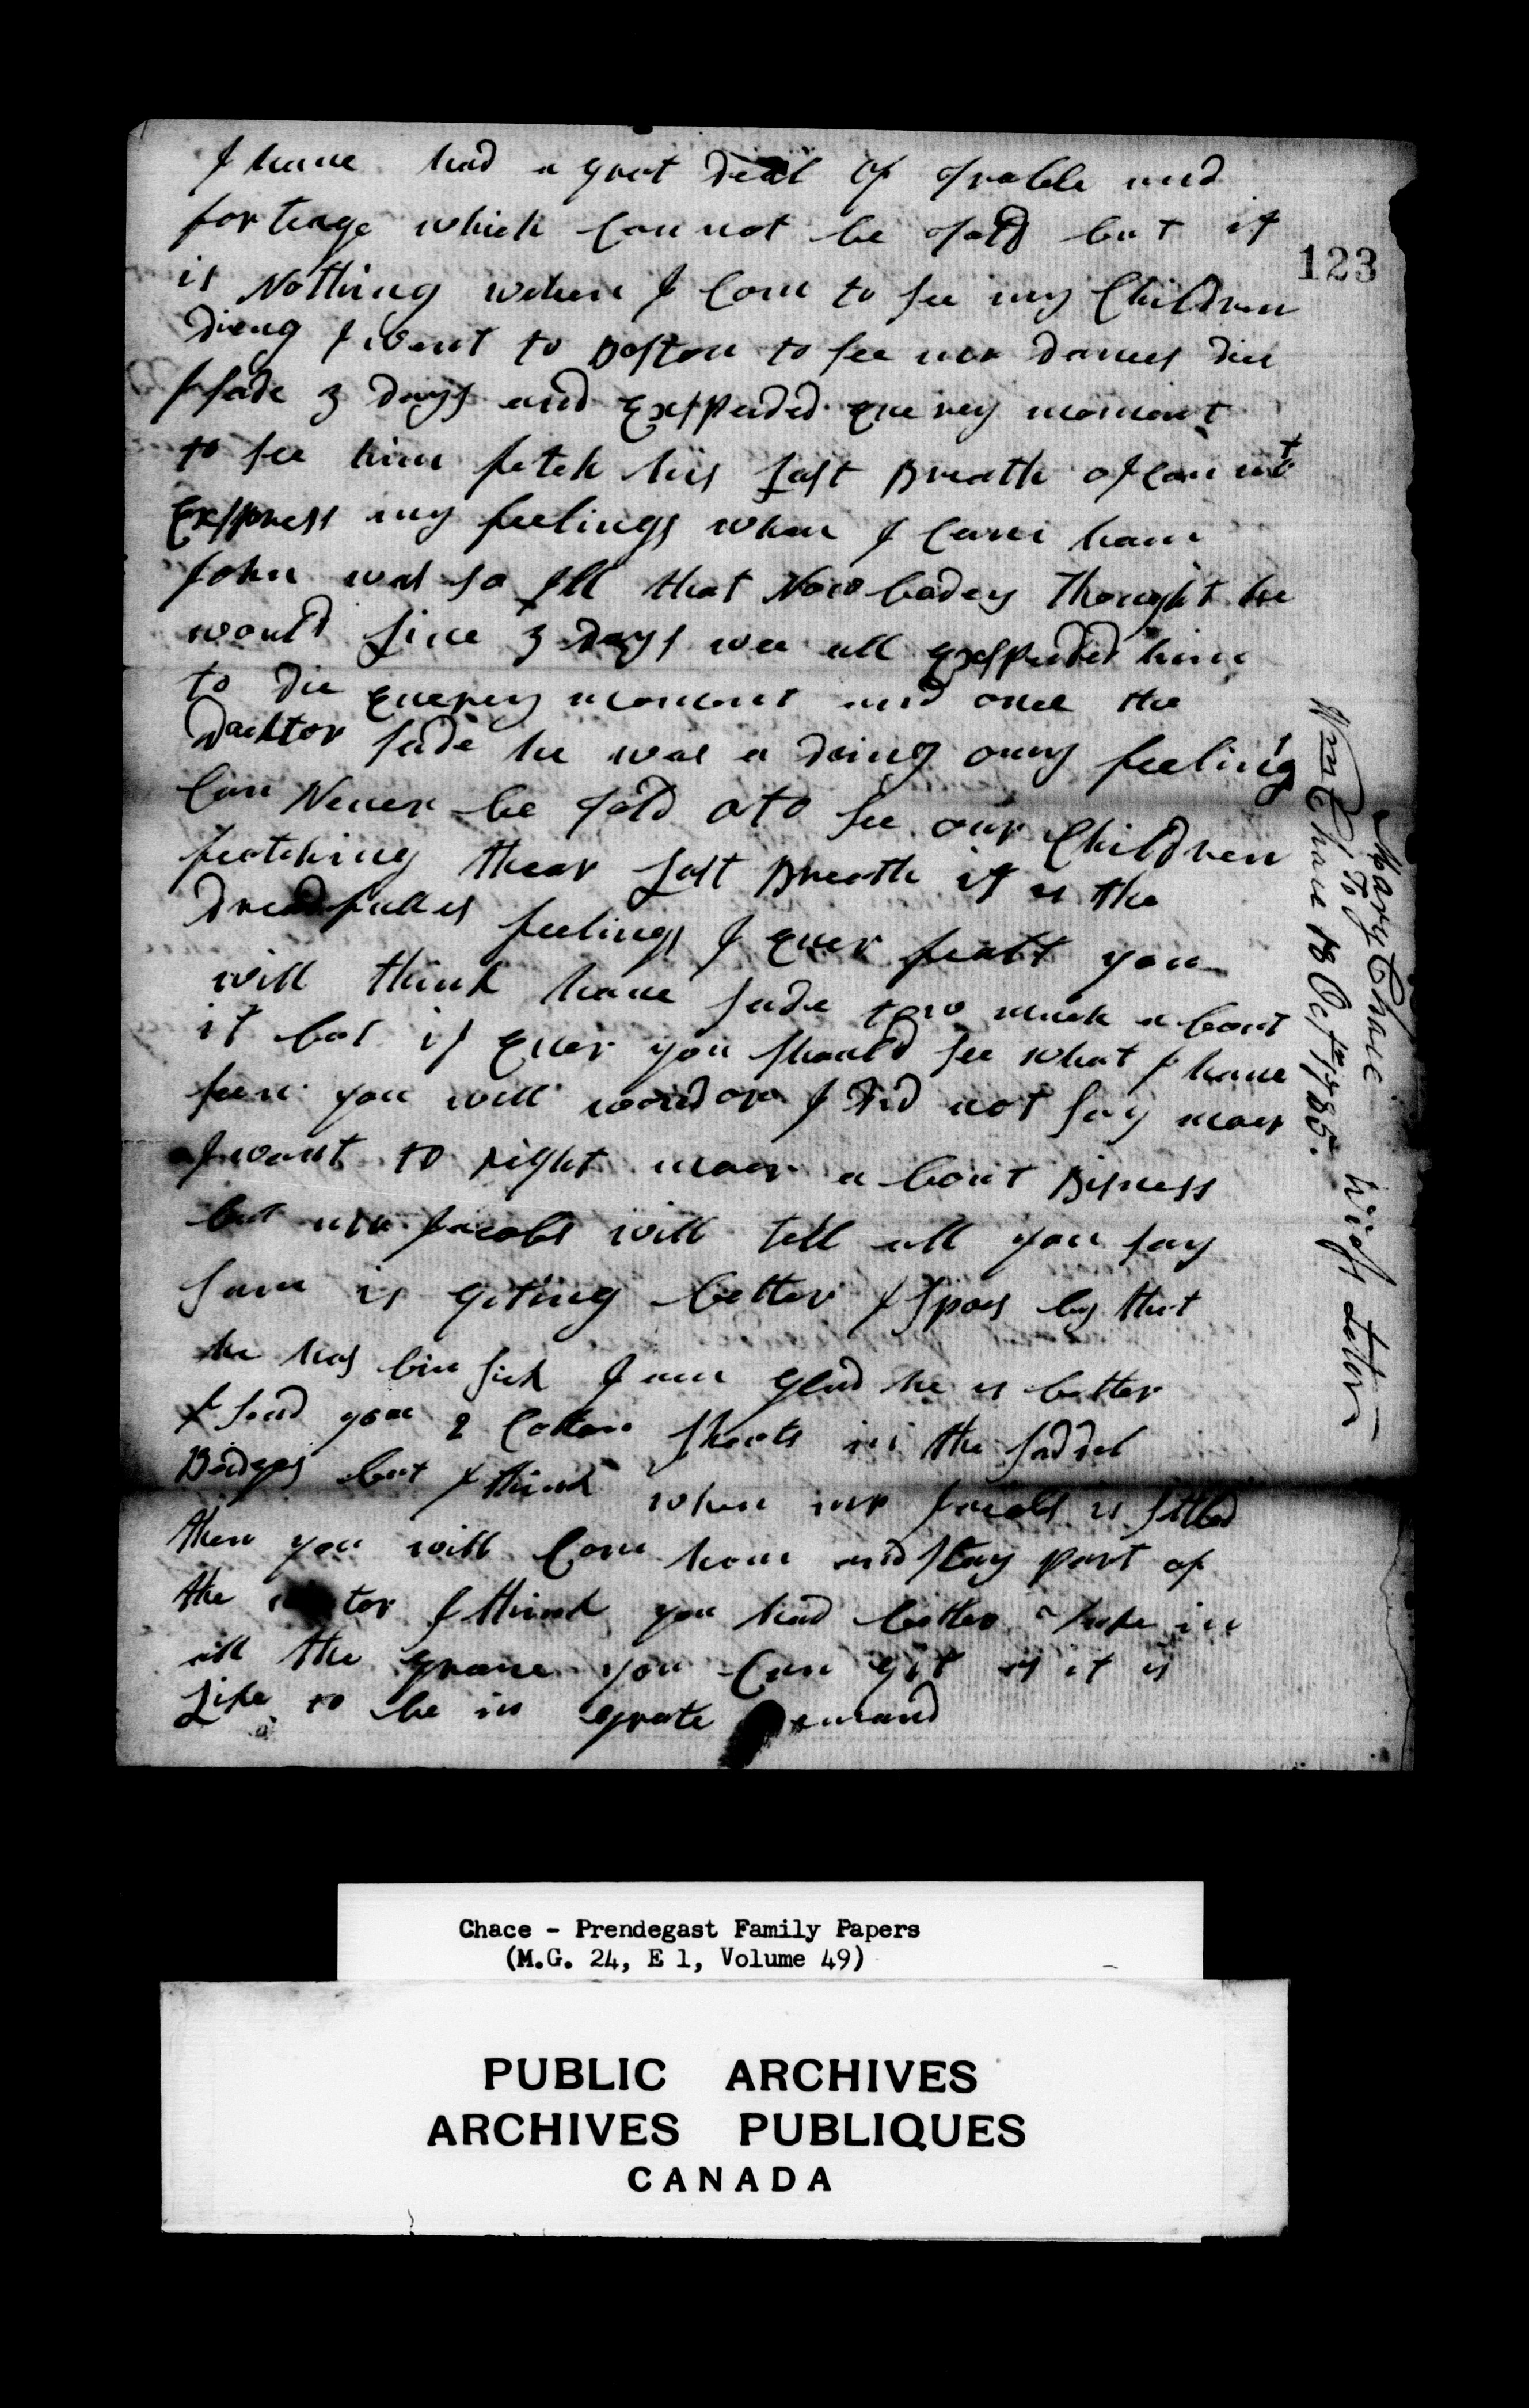 I have had a grat deal of trobble and
forteage which Can not be told but it
123
is Nothing when I Com to see my Children
Dieng I went to Boston to see mr danes die
I sade 3 days and Exspected Every moment
to see him fetch his Last Breath o I can not
Exspress my feelings when I Came ham
John was so Ill that Now bodey thought he
would Live 3 Days wee all Exspected him
to die Everey moment and once the
Dacktor sade he was a doing oury feelings
Can Never be told o to see our Children
featching thear Last Breath it is the
Dreadfulles feelings I Ever fealt you
will think have sade tow much a bout
it bot if Ever you should see what I have
seen you will wondor I did not say moer
I want to right moer a bout Bisness
but mr Jacobs will tell all you say
Sam is Geting better I Spoes by that
he has bin sick I am Glad he is better
I send you 2 Cotten sheets in the saddel
Baidges but I think when mr Jacobs is settled
then you will Com hom and stay part of
the I think you had better take in
all the Grane you Can Git as it is
Like to be in Grate Demand
Mary Chace
To
Wm Chace 18 Octr 1785.
Chace - Prendegast Family Papers
(M.G. 24, E 1, Volume 49)
PUBLIC ARCHIVES
ARCHIVES PUBLIQUES
CANADA